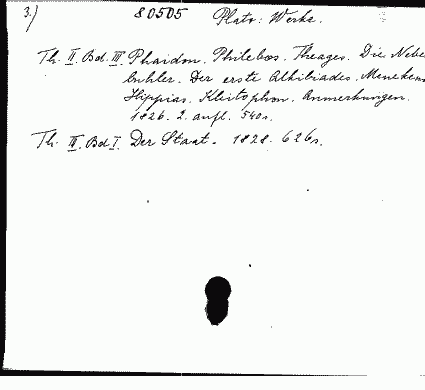 3.) 80505 Plato: Werke.
Th. II. Bd. III Phaidon. Philebos. Theages. Die Nebe
buhler. Der erste Alkibiades. Menexenos
Hippias. Kleitophon. Anmerkungen.
1826. 2. aufl. 540s.
Th. III. Bd. I. Der Staat. 1828. 626s.